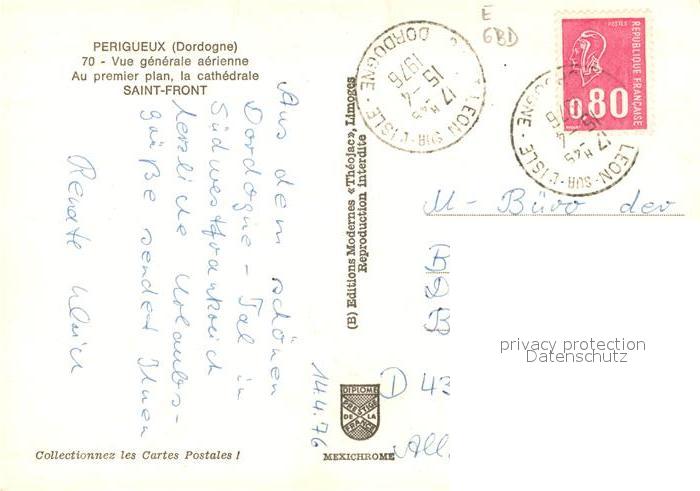 PERIGUEUX (Dordogne)
70 - Vue générale aérienne
Au premier plan, la cathédrale
SAINT-FRONT
Aus dem schönen
Dordogne - Tal in
Südwestfrankreich
herzliche Urlaubs-
grüße sendet Ihnen
Renate Ulrich
14.4.76
Collectionnez les Cartes Postales !
(B) Editions Modernes «Théojac», Limoges
Reproduction interdite
DIPLOME
PRESTIGE
DE LA
FRANCE
MEXICHROME
E
6BD
LEON-SUR-L'ISLE
17 H45
15-4
1976
DORDOGNE
POSTES
REPUBLIQUE FRANÇAISE
0,80
LEON-SUR-L'ISLE
17 H45
15-4
DOGNE
M - Büro der
B
D
B
D 43
All.
privacy protection
Datenschutz